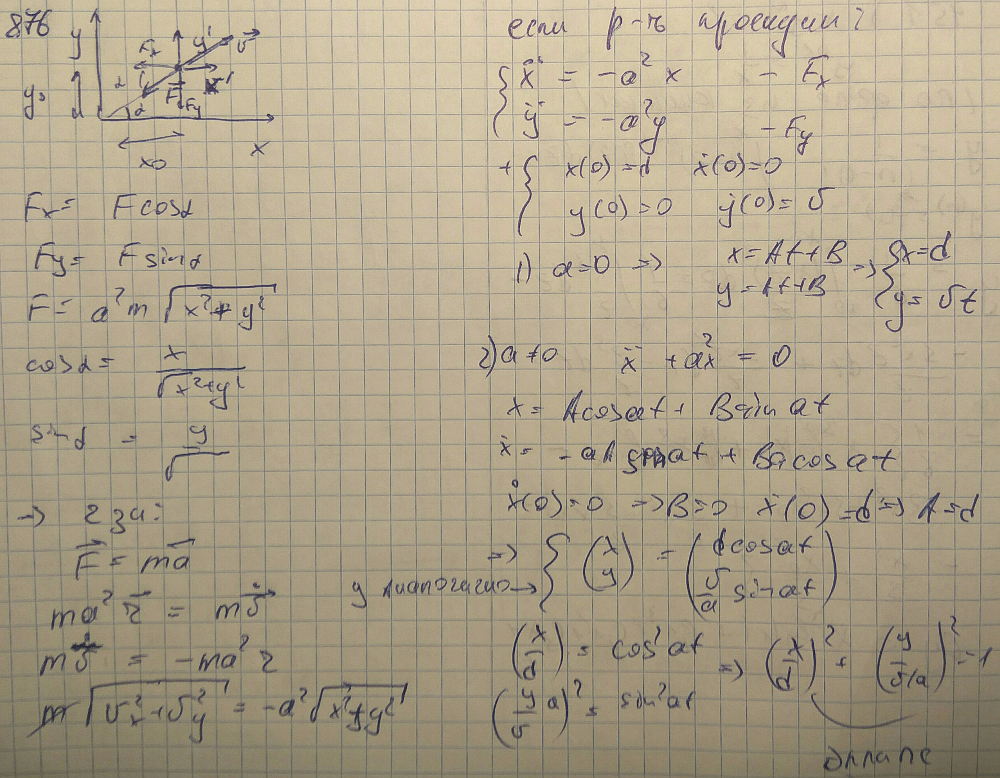 876
y
y₀
Fx
y'
v
x'
F
Fy
α
x₀
x
Fx = F cosα
Fy = F sinα
F = a²m √(x²+y²)
cosα = x/√(x²+y²)
sinα = y/√
→ 2 зак:
F = ma
ma² r = m v̇
m v̇ = -ma² r
m √(v̇x²+v̇y²) = -a² √(x²+y²)
если р-ть проекции?
{ ẍ = -a² x - Fx
ÿ = -a² y - Fy
+ { x(0) = d ẋ(0) = 0
y(0) = 0 ẏ(0) = v
1) a=0 => x = At+B
y = At+B => { x=d
y = vt
2) a≠0 ẍ + a²x = 0
x = A cos at + B sin at
ẋ = -aA sin at + Ba cos at
ẋ(0)=0 => B=0 x(0)=d => A=d
=> { (x y) = (d cos at v/a sin at)
y аналогично →
(x/d)² = cos² at
(y/v a)² = sin² at
=> (x/d)² + (y/(v/a))² = 1
эллипс